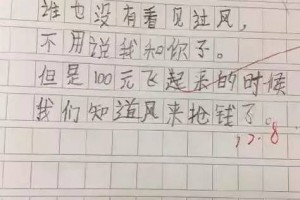 谁也没有看见过风，
不用说我和你了。
但是100元飞起来的时候
我们知道风来抢钱了。
12.8